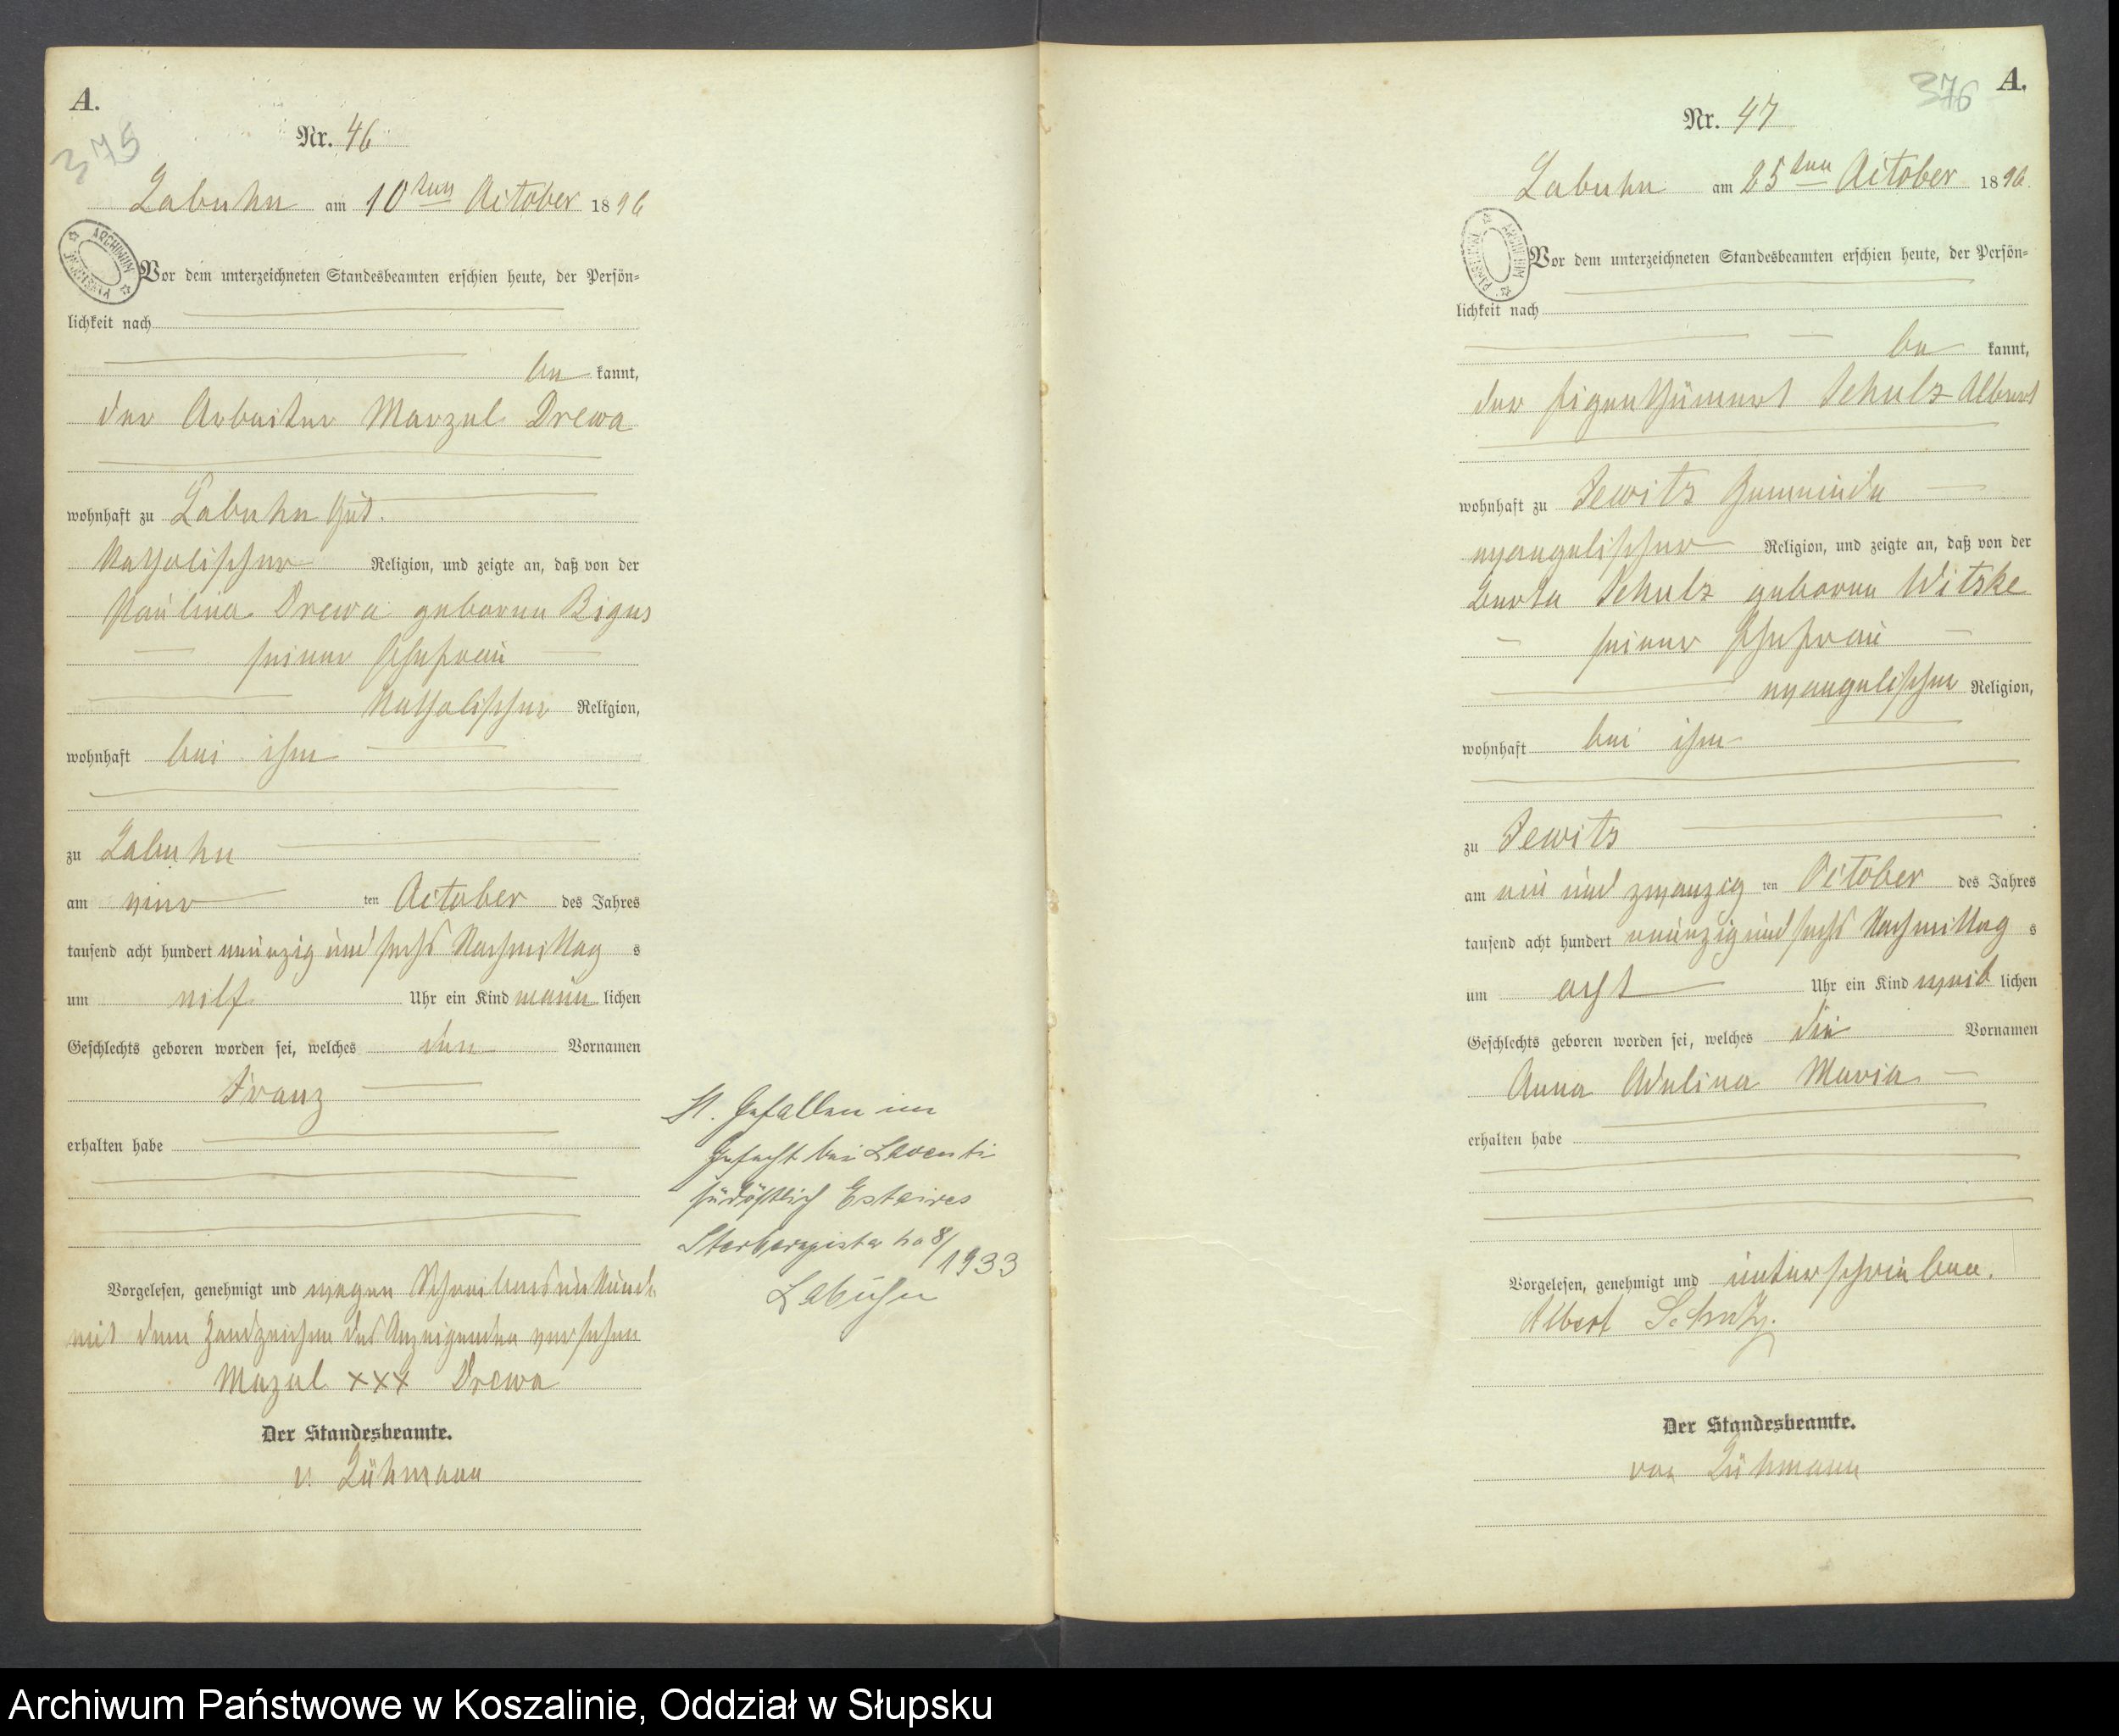 A.
375
Nr. 46
Labuhn am 10ten October 1896
ARCHIWUM PAŃSTWOWE
Vor dem unterzeichneten Standesbeamten erschien heute, der Persön-
lichkeit nach
be kannt,
der Arbeiter Marzel Drewa
wohnhaft zu Labuhn Gut.
katholischer Religion, und zeigte an, daß von der
Paulina Drewa geborne Bigus
seiner Ehefrau
katholischer Religion,
wohnhaft bei ihm
zu Labuhn
am vier ten October des Jahres
tausend acht hundert neunzig und sechs Nachmittag s
um elf Uhr ein Kind männ lichen
Geschlechts geboren worden sei, welches den Vornamen
Franz
erhalten habe
Vorgelesen, genehmigt und wegen Schreibensunkunde
mit dem Handzeichen des Anzeigenden versehen
Mazel xxx Drewa
Der Standesbeamte.
v. Lühmann
Gefallen im
Gefecht bei Laventi
südöstlich Estaires
Sterberegister No 8/
1933
Labuhn
A.
376
Nr. 47
Labuhn am 25ten October 1896.
ARCHIWUM PAŃSTWOWE
Vor dem unterzeichneten Standesbeamten erschien heute, der Persön-
lichkeit nach
be kannt,
der Eigenthümer Schulz Albert
wohnhaft zu Jewitz Gemeinde
evangelischer Religion, und zeigte an, daß von der
Berta Schulz geborne Witzke
seiner Ehefrau
evangelischer Religion,
wohnhaft bei ihm
zu Jewitz
am ein und zwanzig ten October des Jahres
tausend acht hundert neunzig und sechs Nachmittag s
um acht Uhr ein Kind weib lichen
Geschlechts geboren worden sei, welches die Vornamen
Anna Adelina Maria
erhalten habe
Vorgelesen, genehmigt und unterschrieben.
Albert Schulz.
Der Standesbeamte.
von Lühmann
Archiwum Państwowe w Koszalinie, Oddział w Słupsku